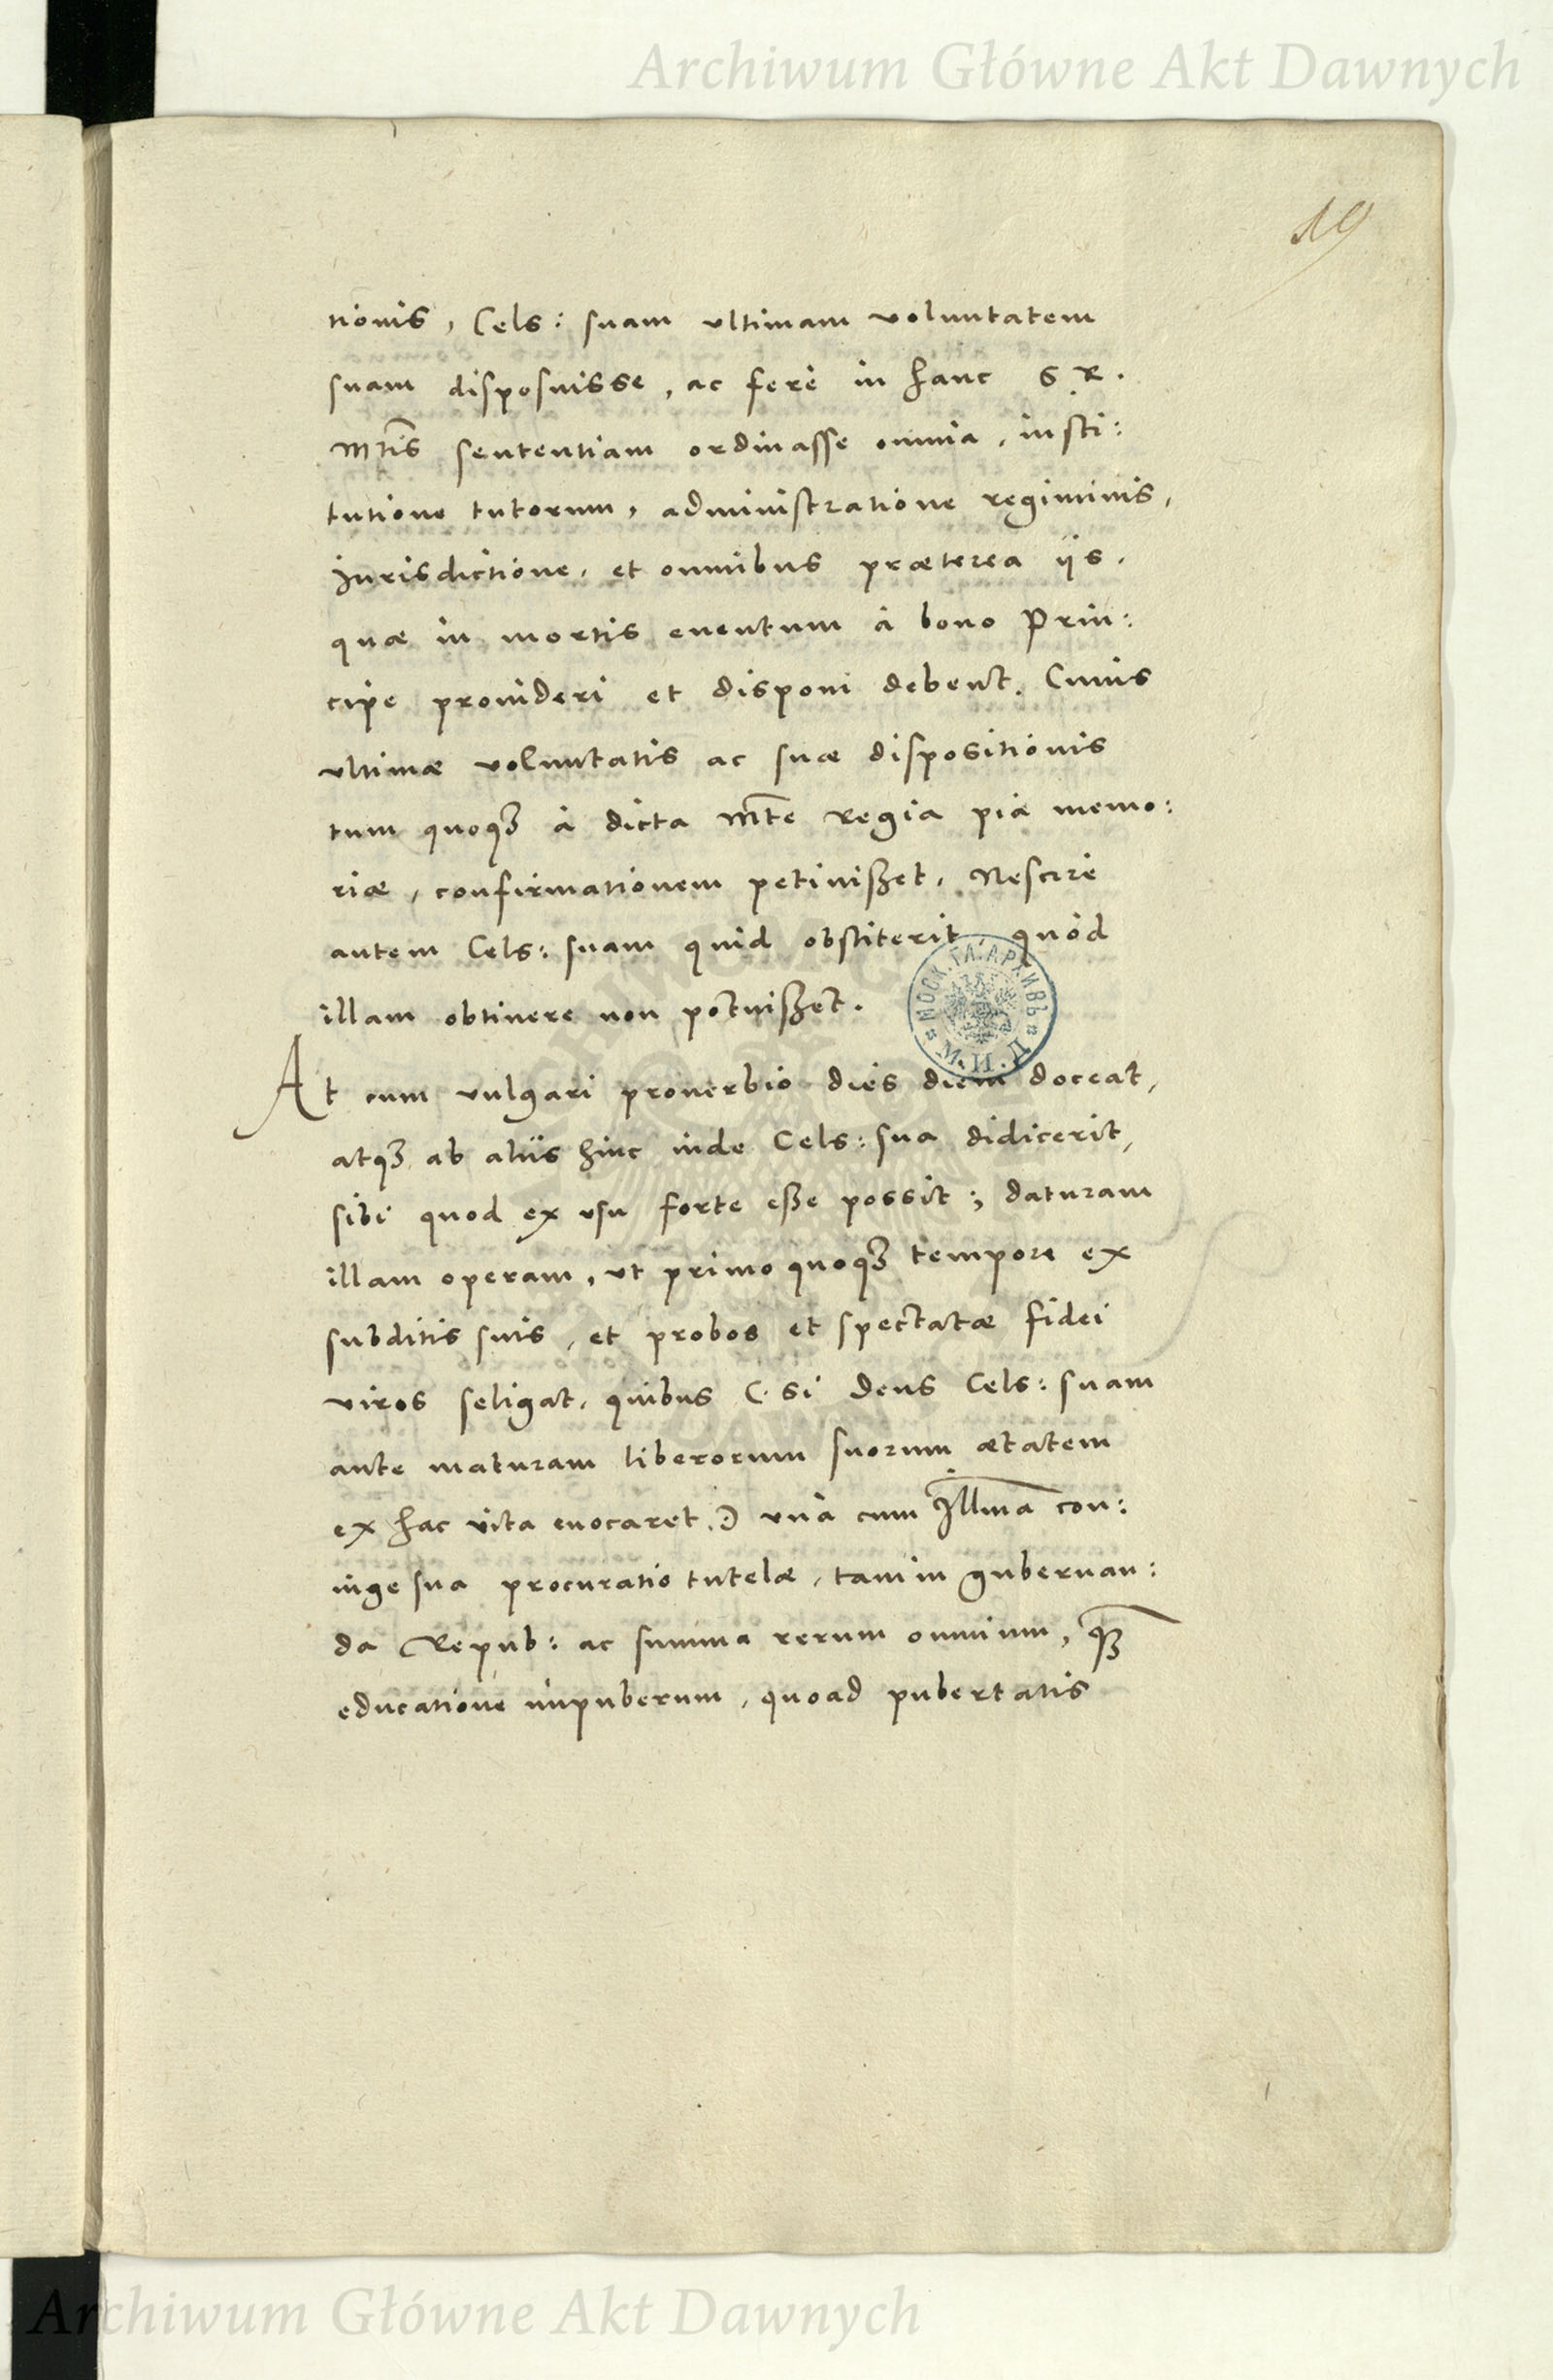 Archiwum Główne Akt Dawnych
19
tionis, Cels: suam ultimam voluntatem
suam disposuisse, ac fere in hanc S. R.
Mtis sententiam ordinasse omnia, insti:
tutione tutorum, administratione regiminis,
Jurisdictione, et omnibus præterea iis.
quæ in mortis euentum à bono Prin:
cipe prouideri et disponi debent. Cuius
ultimæ voluntatis ac suæ dispositionis
tum quoq3 à dicta Mte Regia piæ memo:
riæ, confirmationem petiuißet. Nescire
autem Cels: suam quid obstiterit, quòd
illam obtinere non potuißet.
МОСК. ГЛ. АРХИВЪ М. И. Д.
At cum vulgari prouerbio dies diem doceat,
atq3 ab aliis hinc inde Cels: sua didicerit,
sibi quod ex usu forte eße possit; daturam
illam operam, ut primo quoq3 tempore ex
subditis suis, et probos et spectatæ fidei
viros seligat, quibus (. si Deus Cels: suam
ante maturam liberorum suorum ætatem
ex hac vita euocaret .) unà cum Illma con:
iuge sua procuratio tutelæ, tam in gubernan:
da Repub: ac summa rerum omnium, q3
educatione impuberum, quoad pubertatis
Archiwum Główne Akt Dawnych